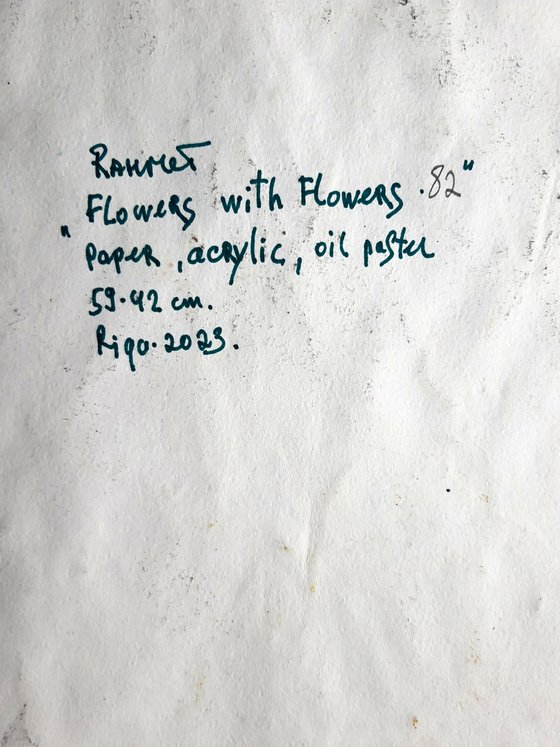 RAHMET
"Flowers with Flowers .82"
paper, acrylic, oil pastel
59.42 cm.
Riga. 2023.